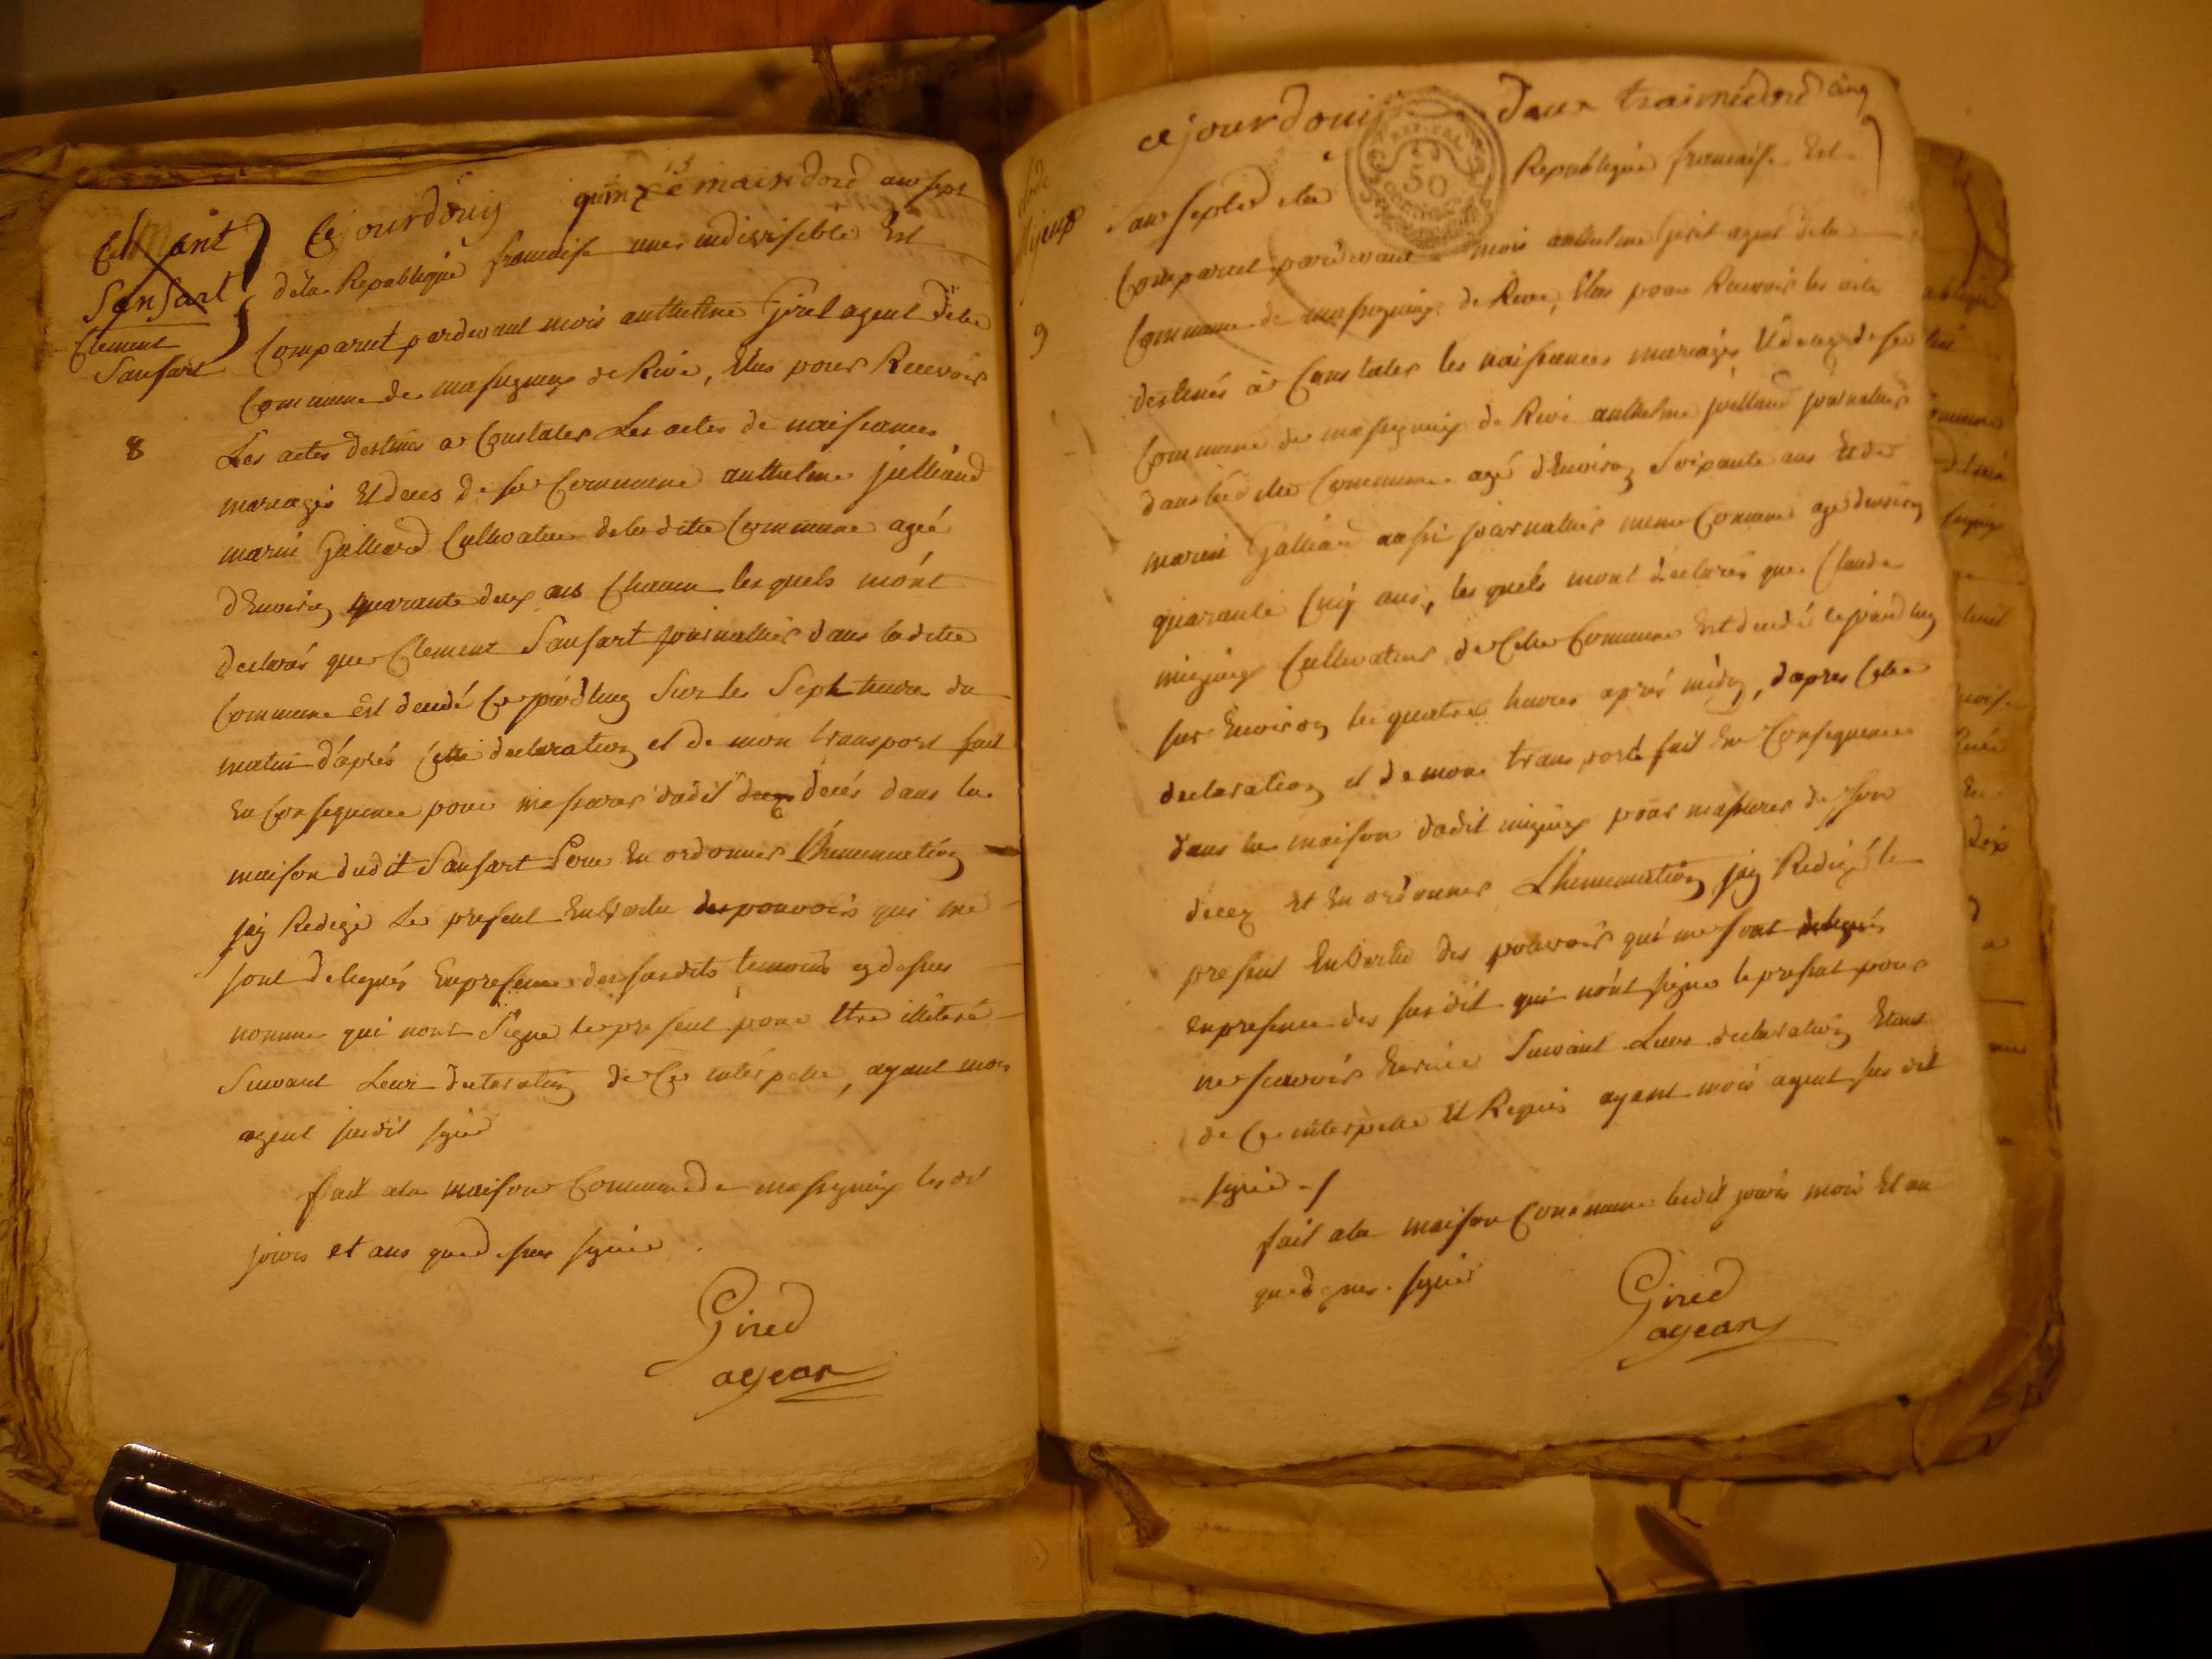 Clement
Sansart
Clement
Sansart
8
Cejourdouy quinze messidord an sept
dela Republique francaise une indivisible Est
Comparut pardevant mois anthelme Giret agent dela
Commune de massignieu de Rive, Elus pour Recevoir
Les actes destinés a Constater Les actes de naissances
mariages Et deces de sa Commune anthelme julliand
marin Galliard Cultivateur deladitte Commune ageé
d'Environ quarante deux ans Chacun lesquels mónt
declarés que Clement Sansart journallier dans ladite
Commune est decedé Ce jourdhuy Sur les Sept heures du
matin d'áprés Cette declaration et de mon transport fait
En Consequence pour massurer dudit deces decés dans la
maison dudit Sansart Pour En ordonner l'hinnumation
jay Redigé Le present En Vertu des pouvoirs qui me
sont delegués En presence des susdits temoins cydessus
nommé qui nont Signé le present pour Etre illiteré
Suivant Leur declaration de Ce interpellé, ayant mois
agent susdit signé
fait ala maison Commune de massignieu les dit
jours et ans quedessus signié
Gired
agean
cejourdoui doux traimidord cinq
an septied de la Republique francaise Est
Comparut pardevant mois anthelme Giret agent dela
9
Commune de massignieu de Rive, Elus pour Recevoir les actes
destinés à Constater les naissances mariages Et deces de sa
Commune de massignieu de Rive anthelme juilland journallier
dans laditte Commune agé d'Environ Soixante ans Et de
marin Galliard aussi journallier meme Commune agé denviron
quarante Cinq ans, lesquels mont declarés que Claude
migieux Cultivateur de Cette Commune Est decedé cejourdhuy
sur Environ les quatre heures aprés midy, dapres Cette
declaration et de mon transporte fait En Consequence
dans la maison dudit migieux pour massurer de son
decez Et En ordonner L'hinnumation jay Redigé le
present En Vertu des pouvoirs qui me sont delegués
en presence des susdit qui nónt signé le present pour
ne scavoir Ecrire Suivant Leur declaration Etant
de Ce interpellé Et Requis ayant mois agent susdit
signié
fait ala maison Commune ledit jours mois Et an
que signié
Gired
agean